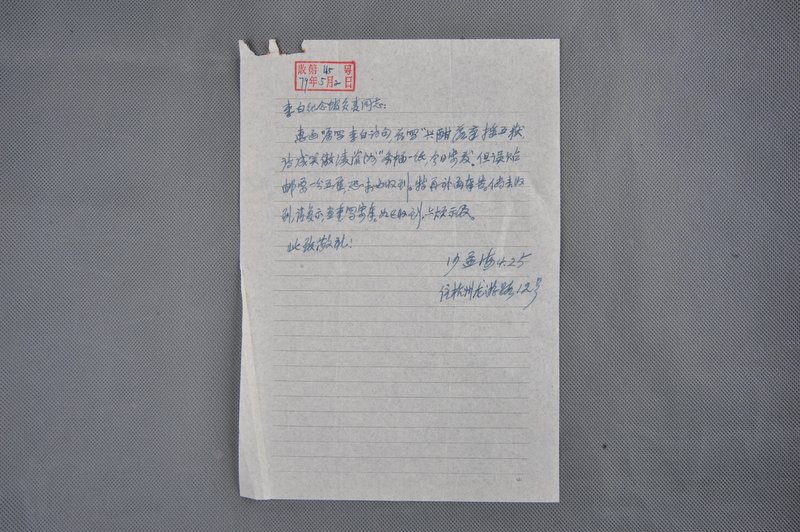 收馆 45 号
79年5月2日
李白纪念馆负责同志:
惠函嘱写李白诗句,前写“兴酣落笔摇五岳,
诗成笑傲凌沧州”条幅一纸,今日寄发。但误贴
邮票一分五厘,恐未必收到。特再补函奉告,倘未收
到,请复示,当重写寄奉。如已收到,亦烦示及。
此致敬礼!
沙孟海 4.25
住杭州龙游路12号